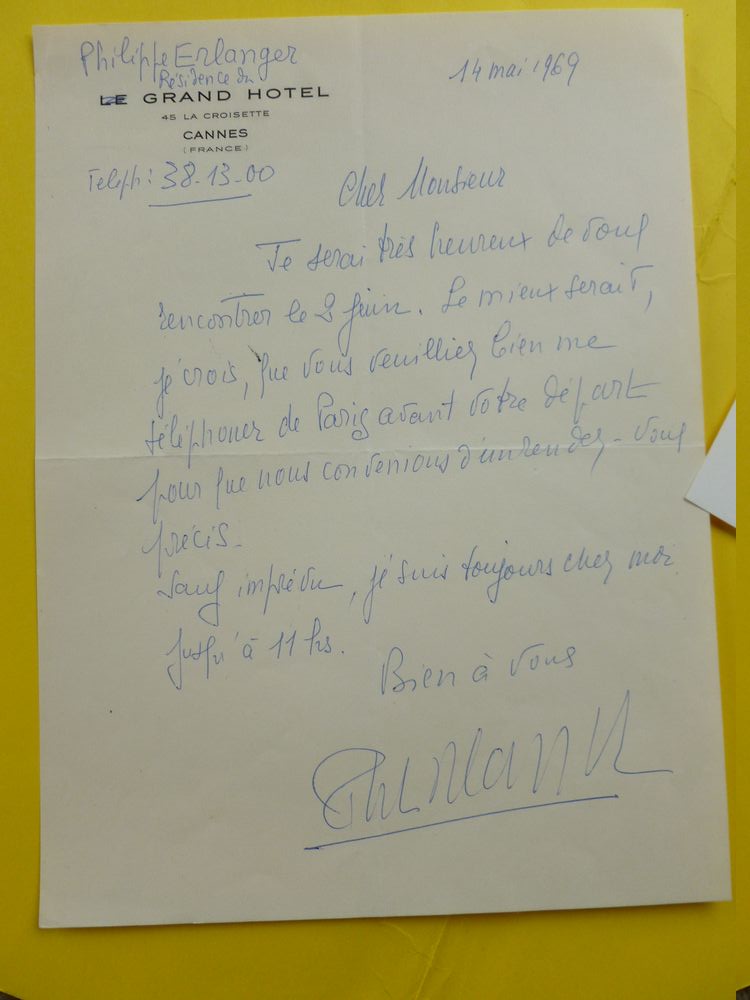 Philippe Erlanger
14 mai 1969
Résidence du
LE GRAND HOTEL
45 LA CROISETTE
CANNES
(FRANCE)
Teleph : 38-13-00
Cher Monsieur
Je serai très heureux de vous
rencontrer le 2 juin. Le mieux serait,
je crois, que vous veuilliez bien me
téléphoner de Paris avant votre départ
pour que nous convenions d'un rendez-vous
précis.
Sauf imprévu, je suis toujours chez moi
jusqu'à 11 hs.
Bien à vous
Ph Erlanger